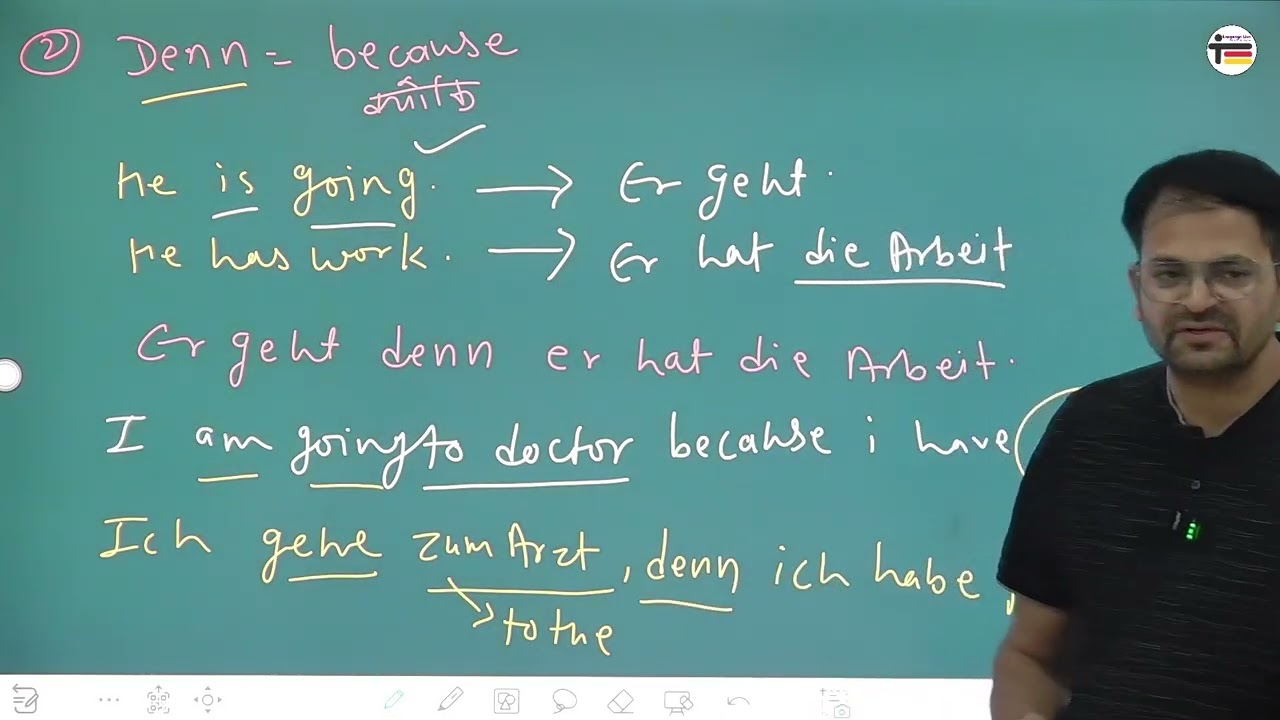 ② Denn = because
He is going. → Er geht.
He has work. → Er hat die Arbeit
Er geht denn er hat die Arbeit.
I am going to doctor because i have
Ich gehe zum Arzt, denn ich habe
to the